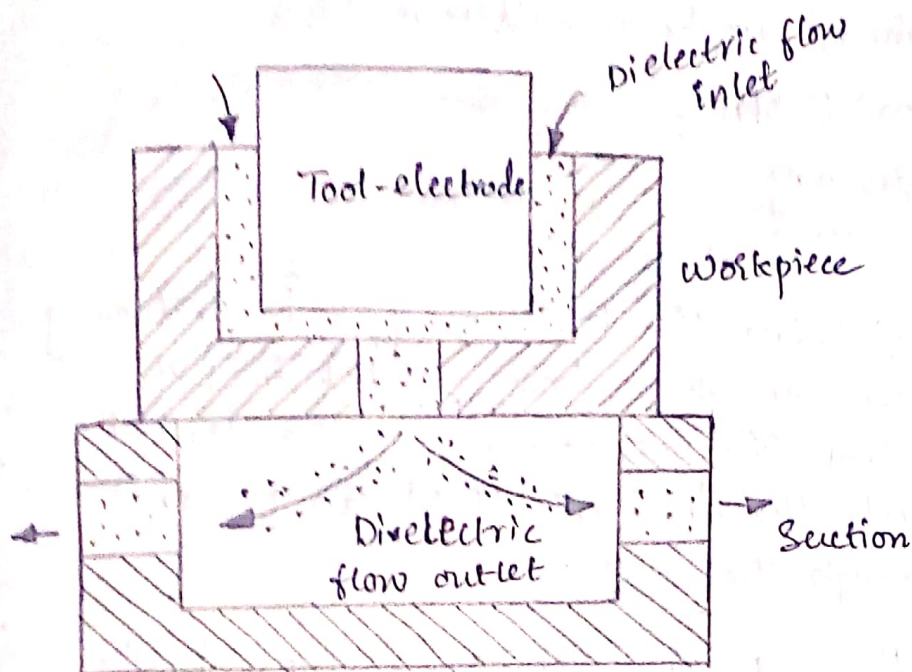 Dielectric flow
inlet
Tool-electrode
Workpiece
Divelectric
flow outlet
Suction